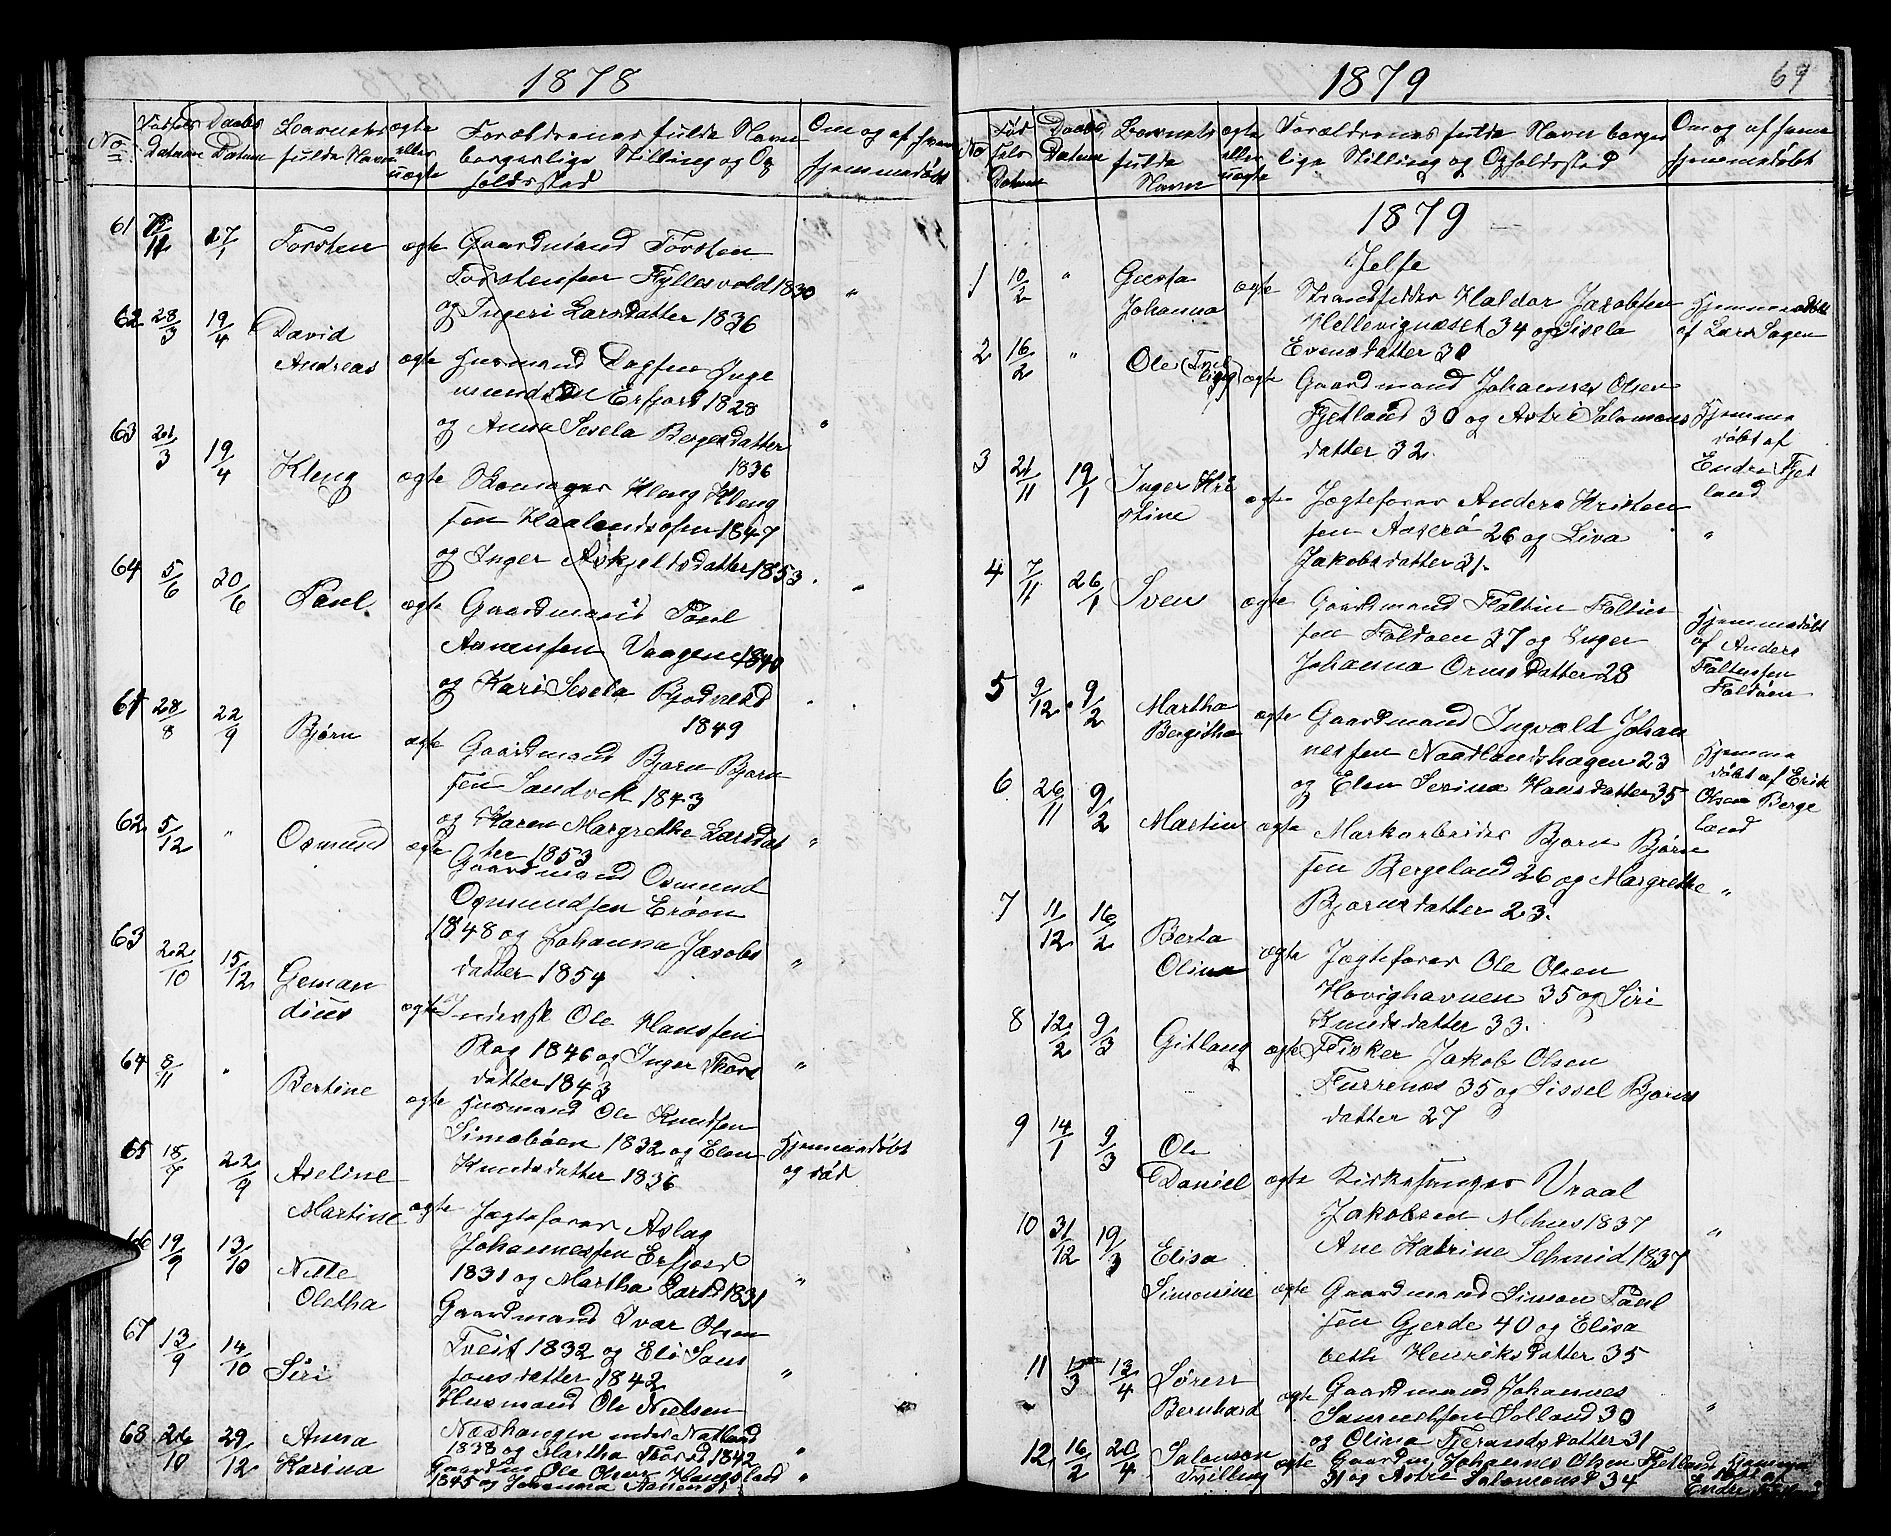 1878
No
Fødsels Datum
Daabs Datum
Barnets fulde Navn
ægte eller uægte
Forældrenes fulde Navn borgerlige Stilling og Opholdssted
Om og af hvem hjemmedøbt
61 11 27/1 Torsten ægte Gaardmand Torsten
Torstensen Fyllesvold 1830 "
og Ingeri Larsdatter 1836
62 28/3 19/4 David
Andreas ægte Husmand Dagfin Inge
mundsen Erfjord 1828
og Anna Sesela Bergesdatter "
1836
63 21/3 19/4 Kleng ægte Kleng Kleng
sen Haalandsosen 1847
og Inger Askjeltsdatter 1853
64 5/6 20/6 Poul ægte Gaardmand Poul
Vaagen 1840
og Kari Sesela
1849
61 28/8 22/9 Bjørn ægte Gaardmand Bjørn Bjørn
sen Sandvik 1843
og Karen Margrethe Larsdat
ter 1853 "
62 5/12 " Osmund ægte Gaardmand Osmund
Osmundsen Erøen
1848 og Johanna Jacobs
datter 1854 "
63 22/10 15/12 Geman
dius ægte Ole Hanssen
1846 og Inger
datter 1843 "
64 8/11 " Bertine ægte Husmand Ole Knudsen
Simebøen 1832 og Elen
Knudsdatter 1836
Hjemmedøbt
og død
65 18/7 22/9 Aseline
Martine ægte Jagtefører Aslag
Johannessen Erfjord
1831 og Martha Larsd 1831 "
66 19/9 13/10 Nille
Oletha
Gaardmand Ivar Olsen
Tveit 1832 og Eli Sams
sonsdatter 1842 "
67 13/9 14/10 Siri
Husmand Ole Nielsen
under Natland
1838 og Martha 1842 "
68 26/10 29/12 Anna
Karina
Gaardm Ole Olsen
1845 og Johanna "
1879
69
No
Fødsels Datum
Daabs Datum
Barnets fulde Navn
ægte eller uægte
Forældrenes fulde Navn borger
lige Stilling og Opholdssted
Om og af hvem
hjemmedøbt
1879
Jelse
1 10/2 " Gusta
Johanna ægte Strandsidder Haldor Jakobsen
Hellevignæset 34 og Sisela
Evensdatter 30
Hjemmedøbt
af Lars Sagen
2 16/2 " Ole (Tvil
ling) ægte Gaardmand Johannes Olsen
Fjetland 30 og Astri Salomons
datter 32
Hjemme
døbt af
Endre Fjet
land
3 21/11 19/1 Inger Kri
stine ægte Jagtefører Anders Kristen
sen Aaserø 26 og Liva
Jakobsdatter 31. "
4 7/11 26/1 Sven ægte Gaardmand Faltin Faltin
sen Foldøen 27 og Inger
Johanna Ormsdatter 28
Hjemmedøbt
af Anders
Faltinsen
Foldøen
5 9/12 9/2 Martha
Bergitha ægte Gaardmand Ingvald Johan
nessen Naadlandshagen 23
og Elen Serina Hansdatter 35
Hjemme
døbt af Erik
Olsen Berge
land
6 26/11 9/2 Martin ægte Markarbeider Bjørn Bjørn
sen Bergeland 26 og Margrethe
Bjørnsdatter 23. "
7 11/12 16/2 Berta
Olina ægte Jagtefører Ole Olsen
Hovighavnen 35 og Siri
Knudsdatter 33.
8 12/2 9/3 Gitlaug ægte Fisker Jakob Olsen
Furrenæs 35 og Sissel Bjørns
datter 27
9 14/1 9/3 Ole
Daniel ægte Kirkesanger Vraal
Jakobsen Mehus 1837
Ane Katrine Schmid 1837 "
10 31/12 19/3 Elisa
Simonine ægte Gaardmand Simon Poul
sen Gjerde 40 og Elisa
beth Henriksdatter 35
11 13/4 Søren
Bernhard ægte Gaardmand Johannes
Samuelsen Solland 30
og Olina datter 31 "
12 16/2 20/4 Salomon
Tvilling ægte Gaardm Johannes Olsen Fjetland
31 og Astri Salomonsd 34
Hjemme
døbt af
Endre